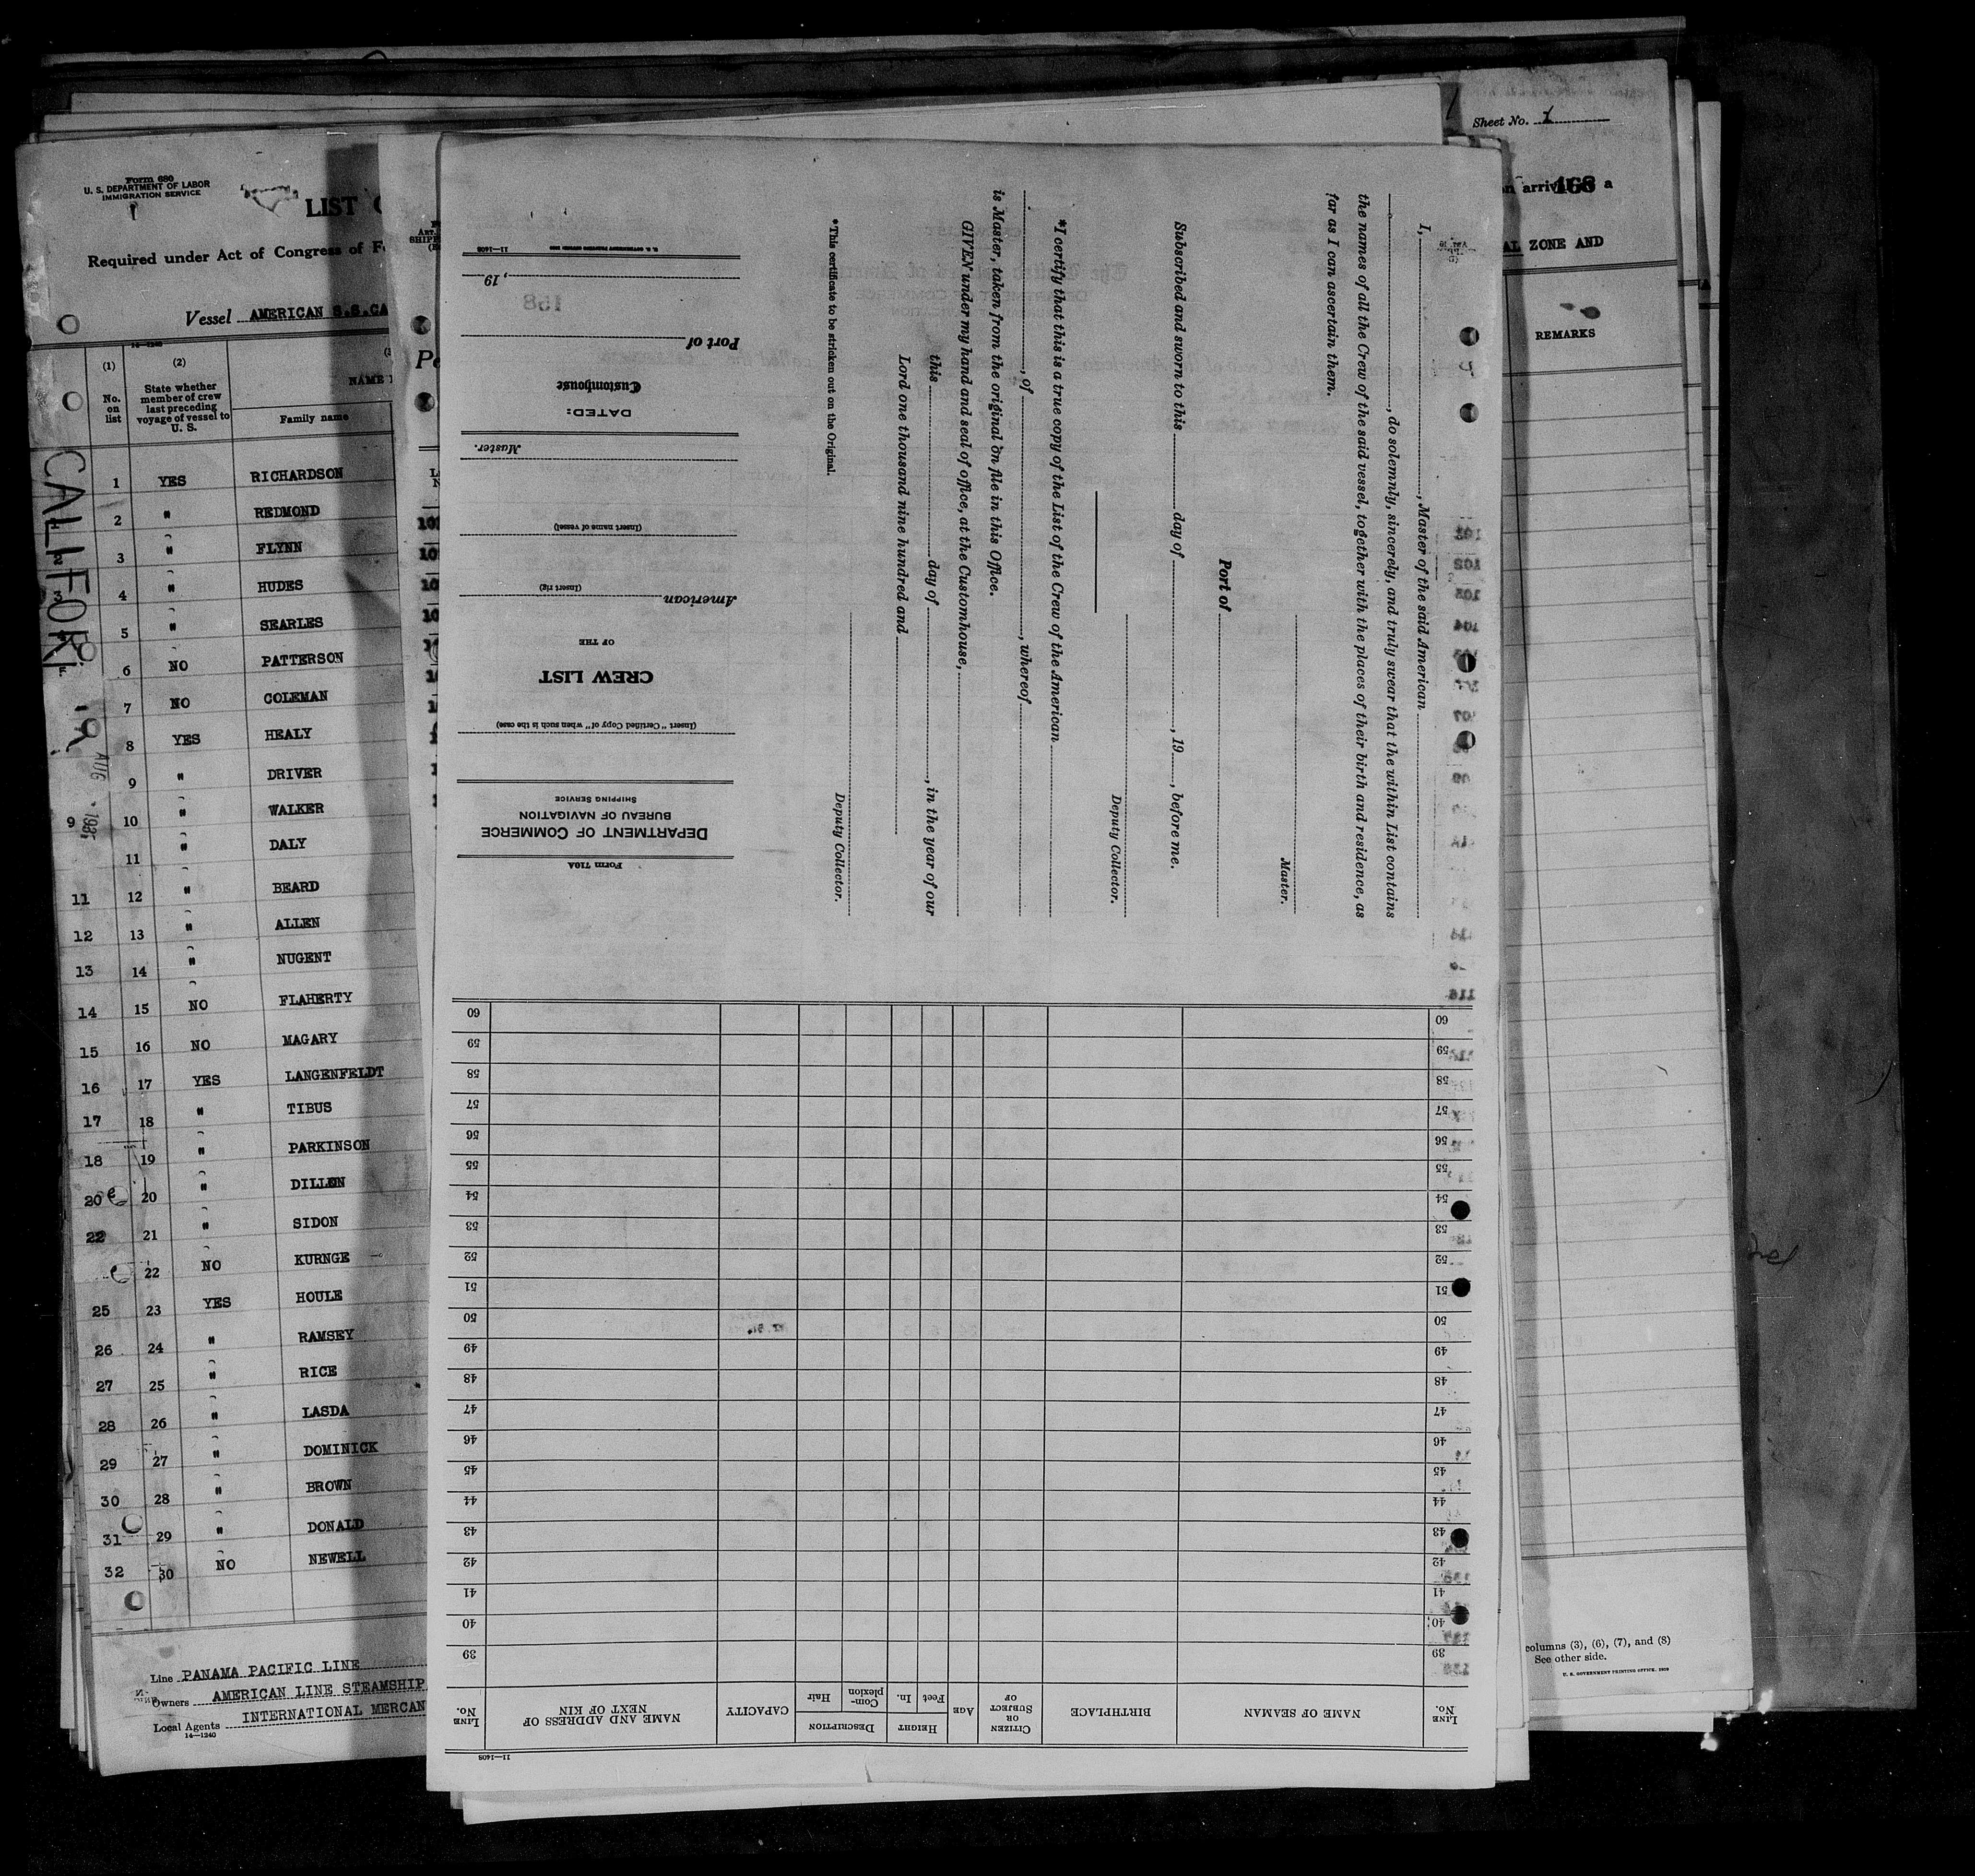 Form 680
U. S. DEPARTMENT OF LABOR
IMMIGRATION SERVICE
LIST
Required under Act of Congress of
Vessel AMERICAN S.S.CA
(1)
No. on list
(2)
State whether member of crew last preceding voyage of vessel to U. S.
NAME
Family name
CALIFORNIA
AUG
1 YES RICHARDSON
2 " REDMOND
3 " FLYNN
4 " HUDES
5 " SEARLES
6 NO PATTERSON
7 NO COLEMAN
8 YES HEALY
9 " DRIVER
9 10 " WALKER
11 " DALY
11 12 " BEARD
12 13 " ALLEN
13 14 " NUGENT
14 15 NO FLAHERTY
15 16 NO MAGARY
16 17 YES LANGENFELDT
17 18 " TIBUS
18 19 " PARKINSON
20 20 " DILLON
22 21 " SIDON
22 NO KURNGE
25 23 YES HOULE
26 24 " RAMSEY
27 25 " RICE
28 26 " LASDA
29 27 " DOMINICK
30 28 " BROWN
31 29 " DONALD
32 30 NO NEWELL
Line PANAMA PACIFIC LINE
Owners AMERICAN LINE STEAMSHIP
Local Agents INTERNATIONAL MERCAN
14—1240
I, , Master of the said American
, do solemnly, sincerely, and truly swear that the within List contains
the names of all the Crew of the said vessel, together with the places of their birth and residence, as
far as I can ascertain them.
Master.
Port of
Subscribed and sworn to this day of , 19 , before me.
Deputy Collector.
*I certify that this is a true copy of the List of the Crew of the American
, of , whereof
is Master, taken from the original on file in this Office.
GIVEN under my hand and seal of office, at the Customhouse,
this day of , in the year of our
Lord one thousand nine hundred and
Deputy Collector.
*This certificate to be stricken out on the Original.
Form 710A
DEPARTMENT OF COMMERCE
BUREAU OF NAVIGATION
SHIPPING SERVICE
(Insert "Certified Copy of" when such is the case)
CREW LIST
OF THE
American
(Insert rig)
(Insert name of vessel)
Master.
DATED:
Customhouse
Port of
, 19
11—1408
11—1408
LINE No.
NAME OF SEAMAN
BIRTHPLACE
CITIZEN OR SUBJECT OF
AGE
HEIGHT
Feet
In.
DESCRIPTION
Complexion
Hair
CAPACITY
NAME AND ADDRESS OF NEXT OF KIN
LINE No.
39 39
40 40
41 41
42 42
43 43
44 44
45 45
46 46
47 47
48 48
49 49
50 50
51 51
52 52
53 53
54 54
55 55
56 56
57 57
58 58
59 59
60 60
Sheet No. 1
168
arrival a
ZONE AND
REMARKS
columns (3), (6), (7), and (8)
See other side.
U. S. GOVERNMENT PRINTING OFFICE